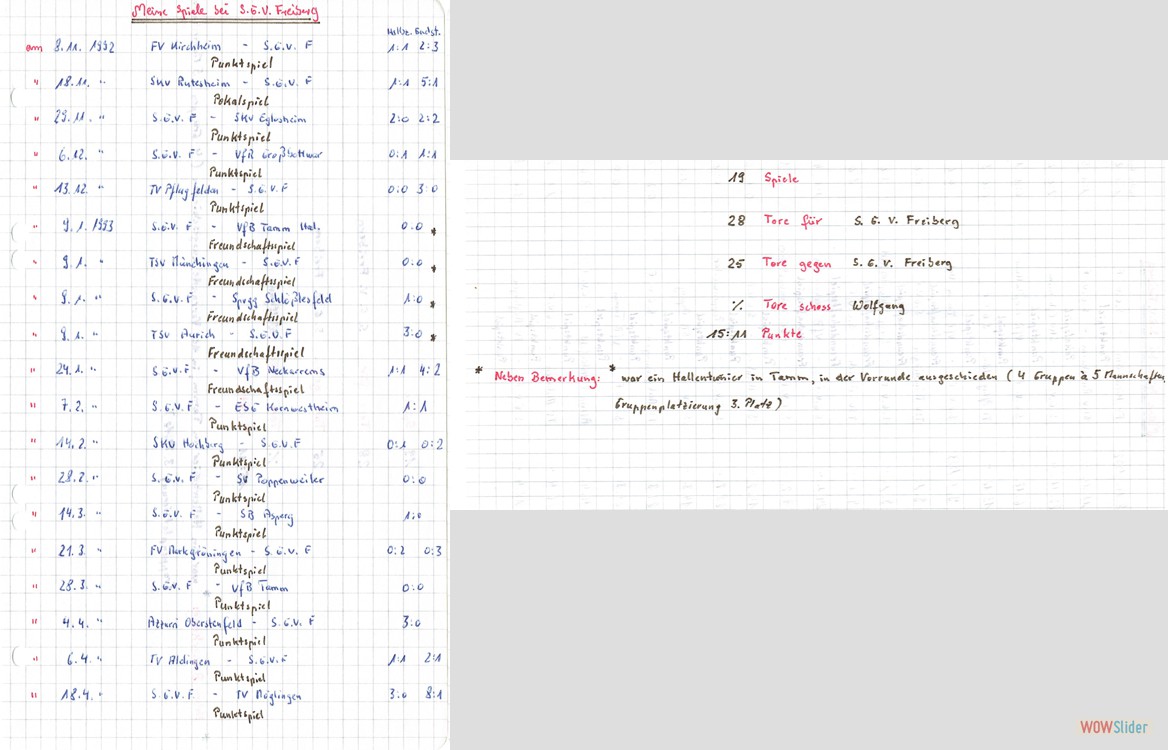 Meine Spiele bei S.G.V. Freiberg
Halbz. Endst.
am 8.11. 1992 FV Kirchheim - S.G.V. F 1:1 2:3
Punktspiel
" 18.11. " SKV Rutesheim - S.G.V. F 1:1 5:1
Pokalspiel
" 29.11. " S.G.V. F - SKV Eglosheim 2:0 2:2
Punktspiel
" 6.12. " S.G.V. F - VfR Großbottwar 0:1 1:1
Punktspiel
" 13.12. " TV Pflugfelden - S.G.V. F 0:0 3:0
Punktspiel
" 9.1. 1993 S.G.V. F - VfB Tamm Hal. 0:0 *
Freundschaftsspiel
" 9.1. " TSV Münchingen - S.G.V. F 0:0 *
Freundschaftsspiel
" 9.1. " S.G.V. F - Spvgg Schlößlesfeld 1:0 *
Freundschaftsspiel
" 9.1. " TSV Aurich - S.G.V. F 3:0 *
Freundschaftsspiel
" 24.1. " S.G.V. F - VfB Neckarrems 1:1 4:2
Freundschaftsspiel
" 7.2. " S.G.V. F - ESG Kornwestheim 1:1
Punktspiel
" 14.2. " SKV Hochberg - S.G.V. F 0:1 0:2
Punktspiel
" 28.2. " S.G.V. F - SV Poppenweiler 0:0
Punktspiel
" 14.3. " S.G.V. F - SB Asperg 1:0
Punktspiel
" 21.3. " FV Markgröningen - S.G.V. F 0:2 0:3
Punktspiel
" 28.3. " S.G.V. F - VfB Tamm 0:0
Punktspiel
" 4.4. " Azzurri Oberstenfeld - S.G.V. F 3:0
Punktspiel
" 6.4. " TV Aldingen - S.G.V. F 1:1 2:1
Punktspiel
" 18.4. " S.G.V. F - TV Möglingen 3:0 8:1
Punktspiel
19 Spiele
28 Tore für S. G. V. Freiberg
25 Tore gegen S. G. V. Freiberg
% Tore schoss Wolfgang
15:11 Punkte
* Neben Bemerkung: * war ein Hallenturnier in Tamm, in der Vorrunde ausgeschieden ( 4 Gruppen à 5 Mannschaften,
Gruppenplatzierung 3. Platz )
WOWSlider